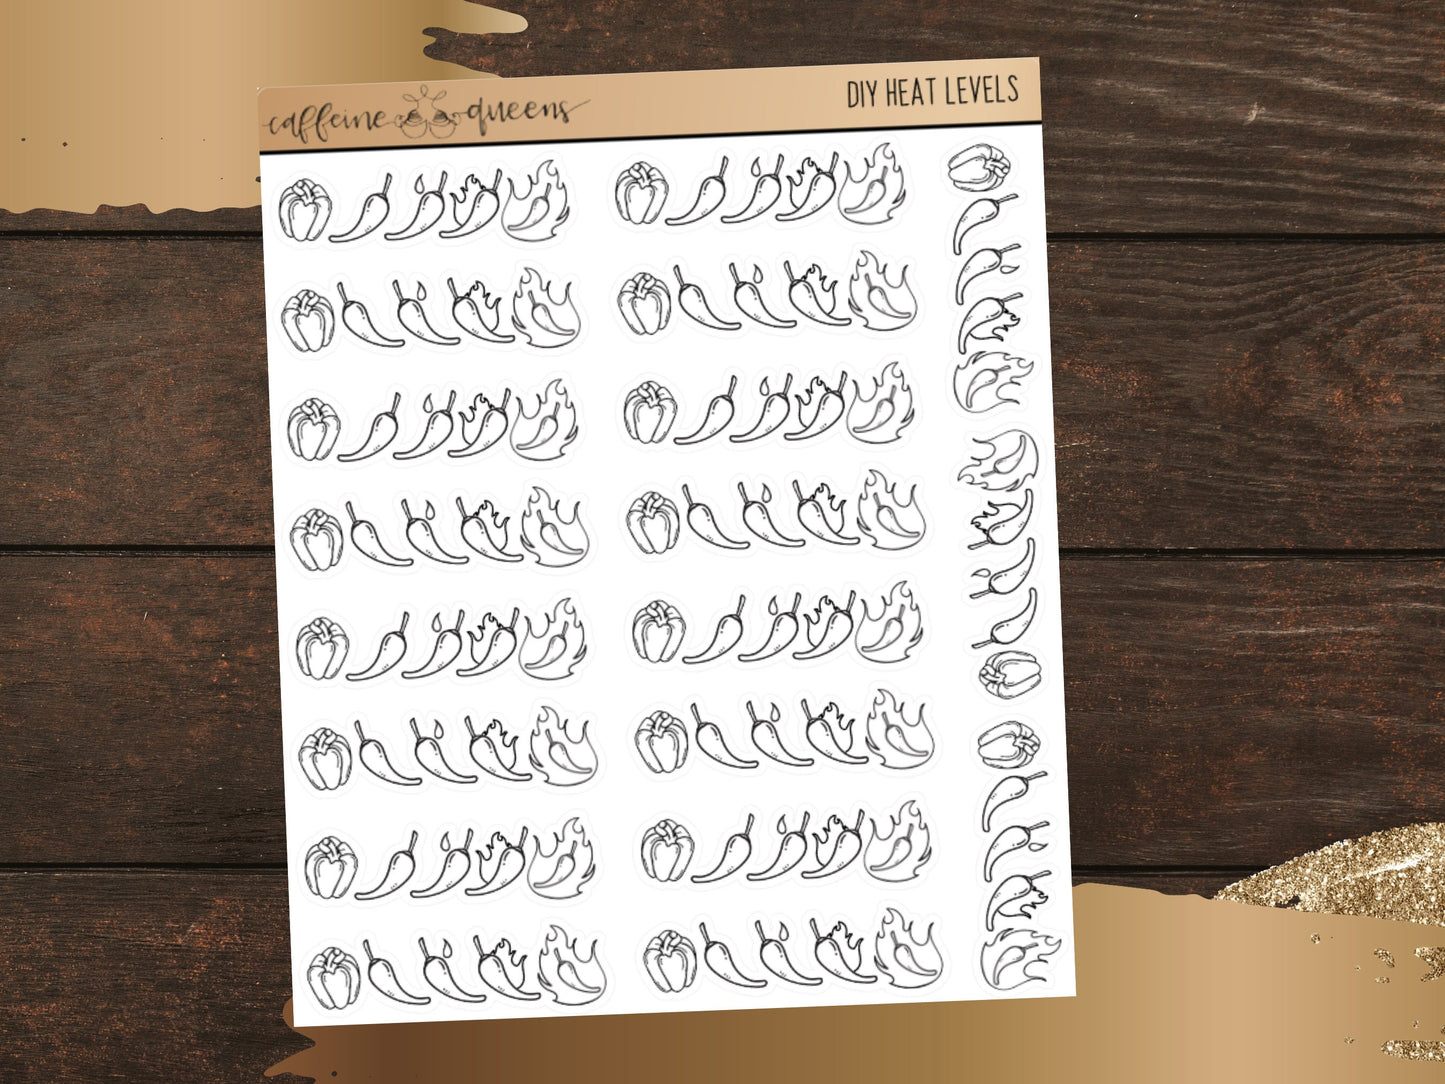 caffeine queens
DIY HEAT LEVELS